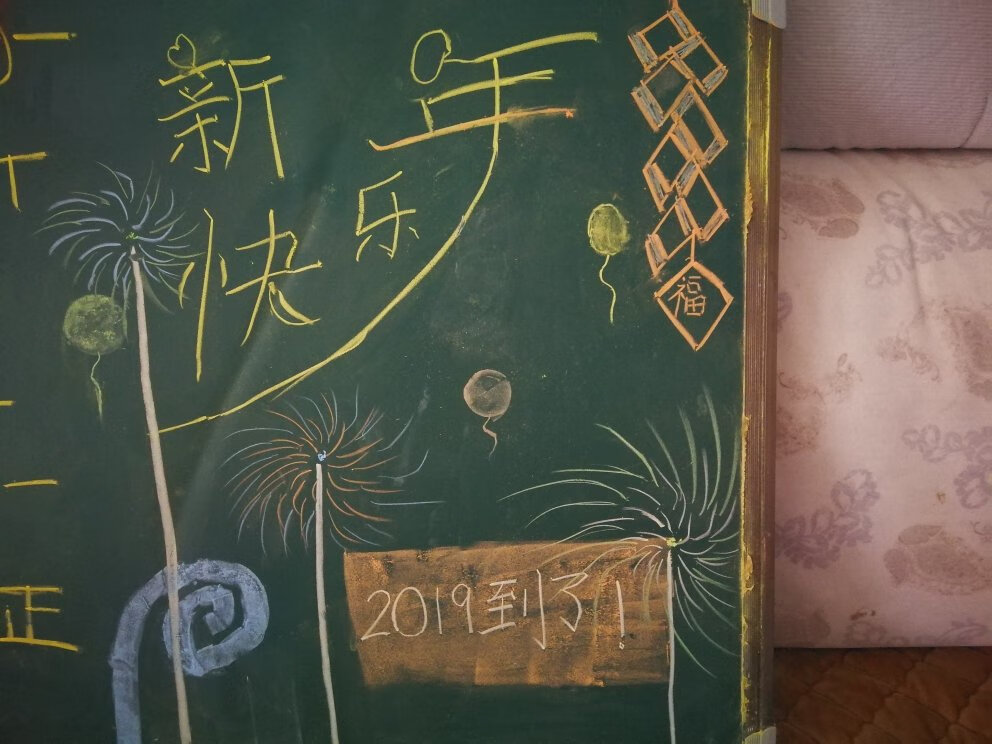 新年
快乐
福
2019到了!
正